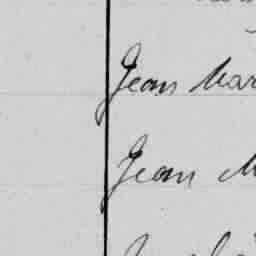 Jean Mar
Jean M